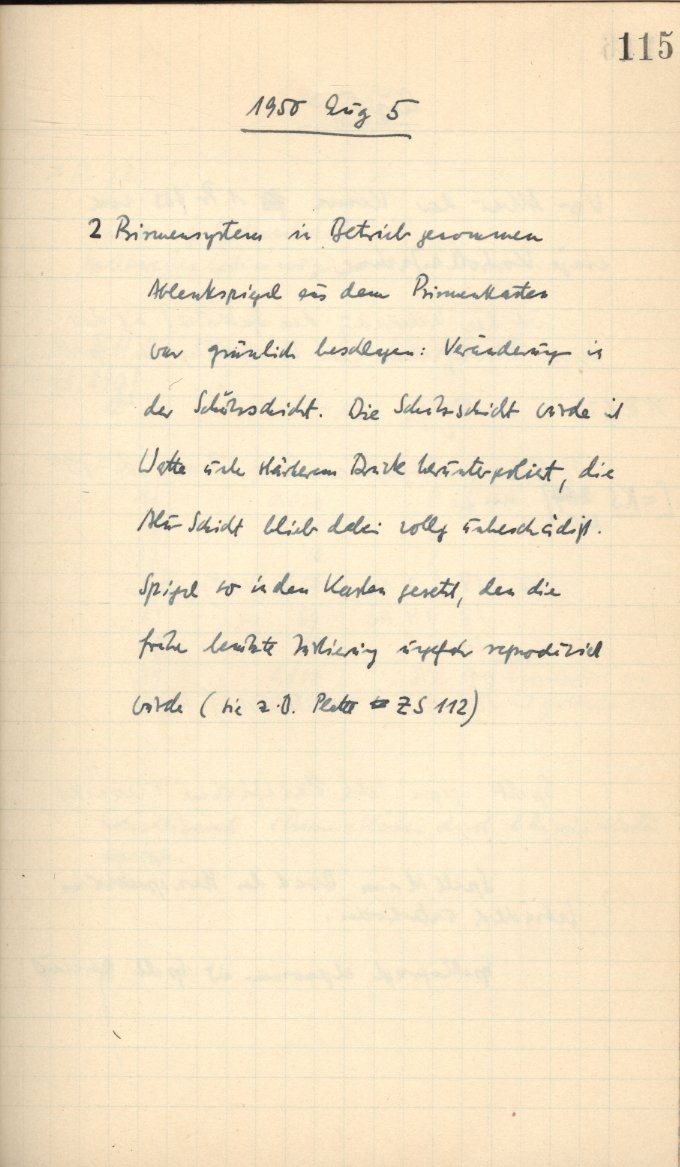 115
1950 Aug 5
2 Prismensystem in Betrieb genommen
Ablenkspiegel aus dem Prismenkasten
war gründlich beschlagen: Veränderung in
der Schutzschicht. Die Schutzschicht wurde mit
Watte unter stärkerem Druck herunterpoliert, die
Alu-Schicht blieb dabei völlig unbeschädigt.
Spiegel so in den Kasten gesetzt, dass die
früher benutzte Justierung ungefähr reproduziert
wurde (wie z.B. Platte ZS 112)